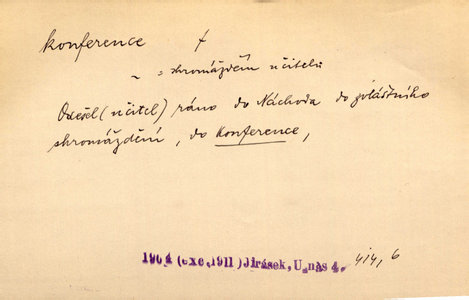 konference f
~ = shromáždění učitelů
Odešel (učitel) ráno do Náchoda do zvláštního
shromáždění, do konference,
1904 (exc.1911) Jirásek, U nás 4. 414, 6